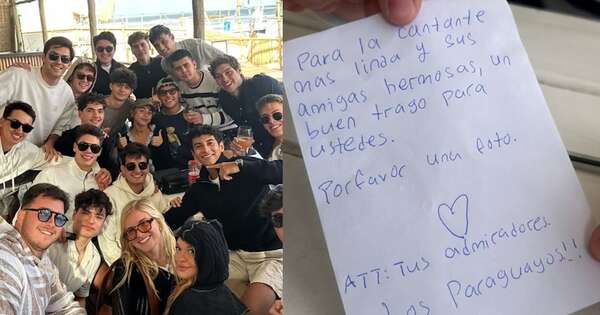 Para la cantante
mas linda y sus
amigas hermosas, un
buen trago para
ustedes.
Porfavor una foto.
ATT: Tus admiradores
Los Paraguayos!!